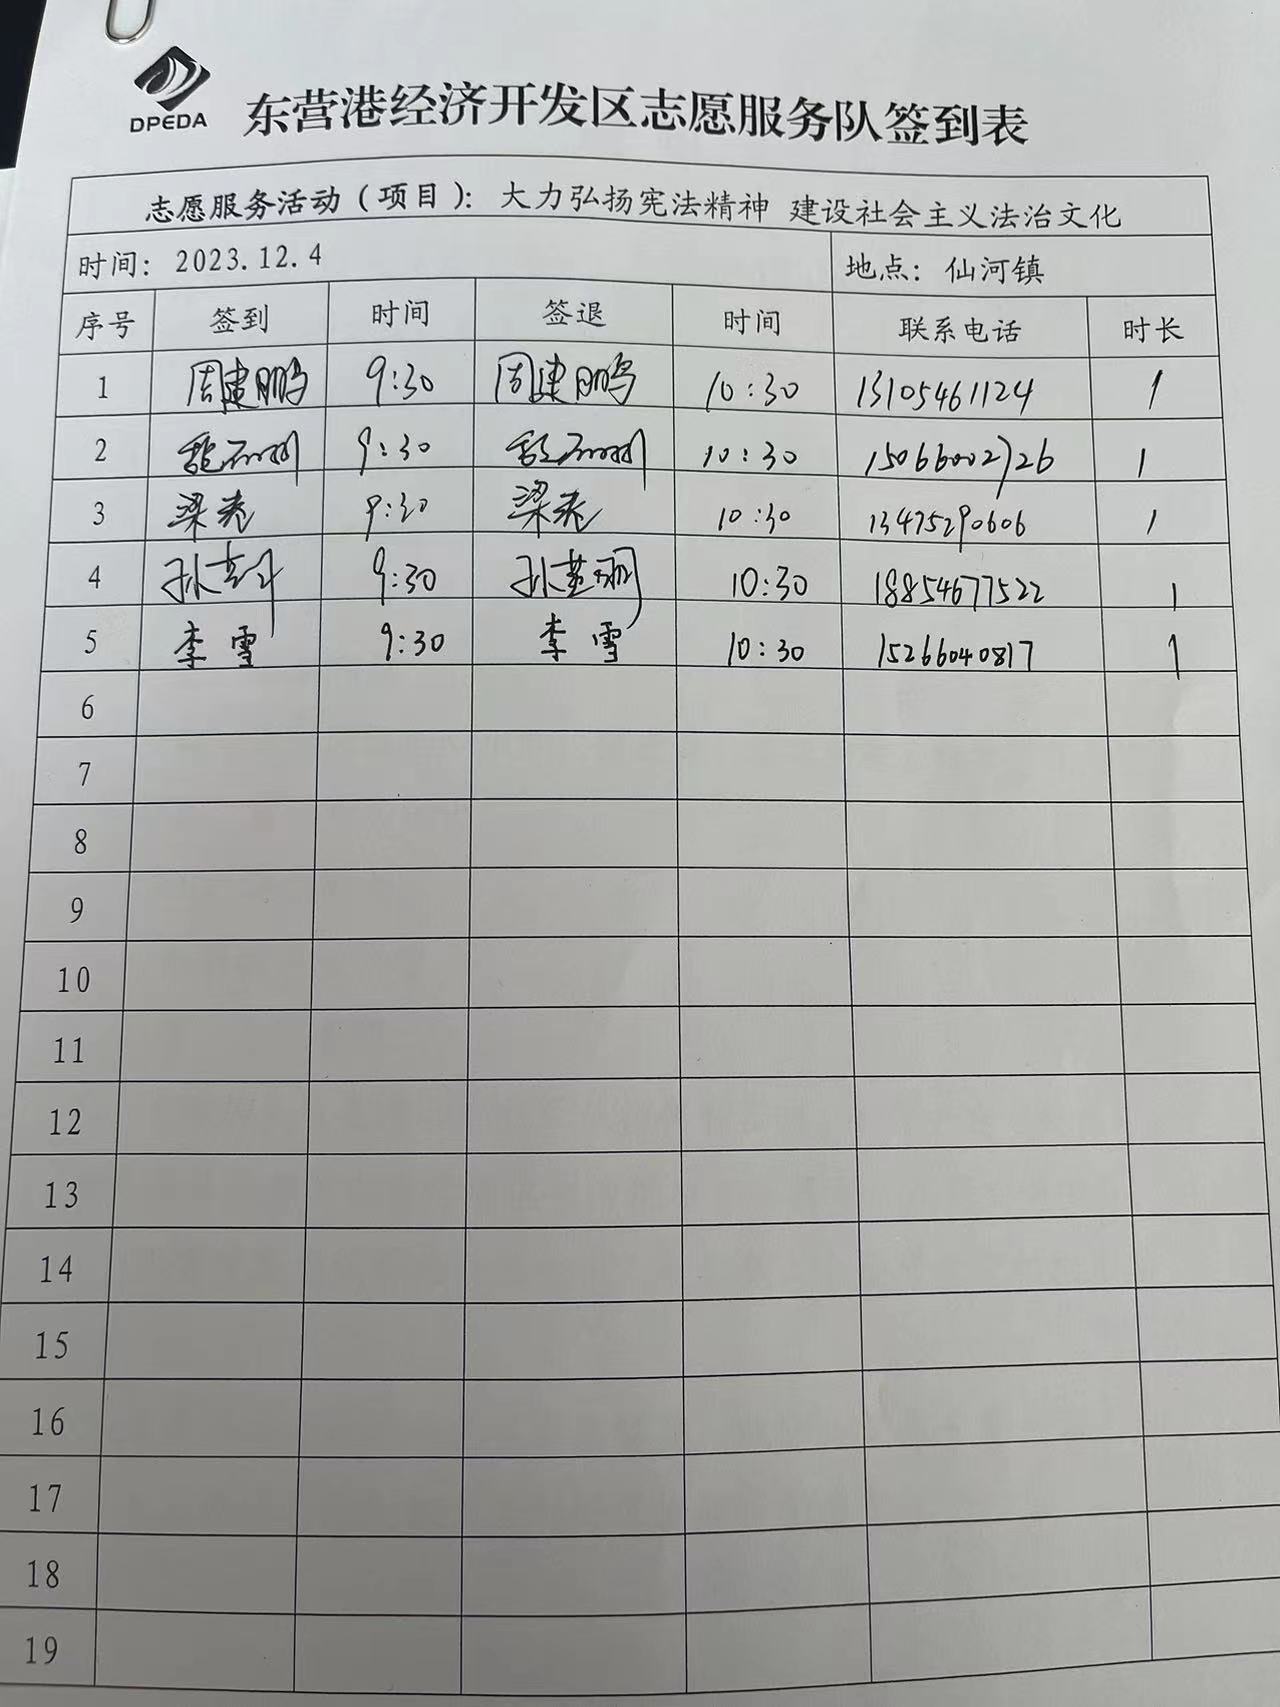 DPEDA
东营港经济开发区志愿服务队签到表
志愿服务活动（项目）：大力弘扬宪法精神 建设社会主义法治文化
时间：2023.12.4 地点：仙河镇
序号 签到 时间 签退 时间 联系电话 时长
1 周建鹏 9:30 周建鹏 10:30 13105461124 1
2 9:30 10:30 15066002726 1
3 梁 9:30 梁 10:30 13475290606 1
4 孙 9:30 孙 10:30 18854677522 1
5 李雪 9:30 李雪 10:30 15266040817 1
6
7
8
9
10
11
12
13
14
15
16
17
18
19